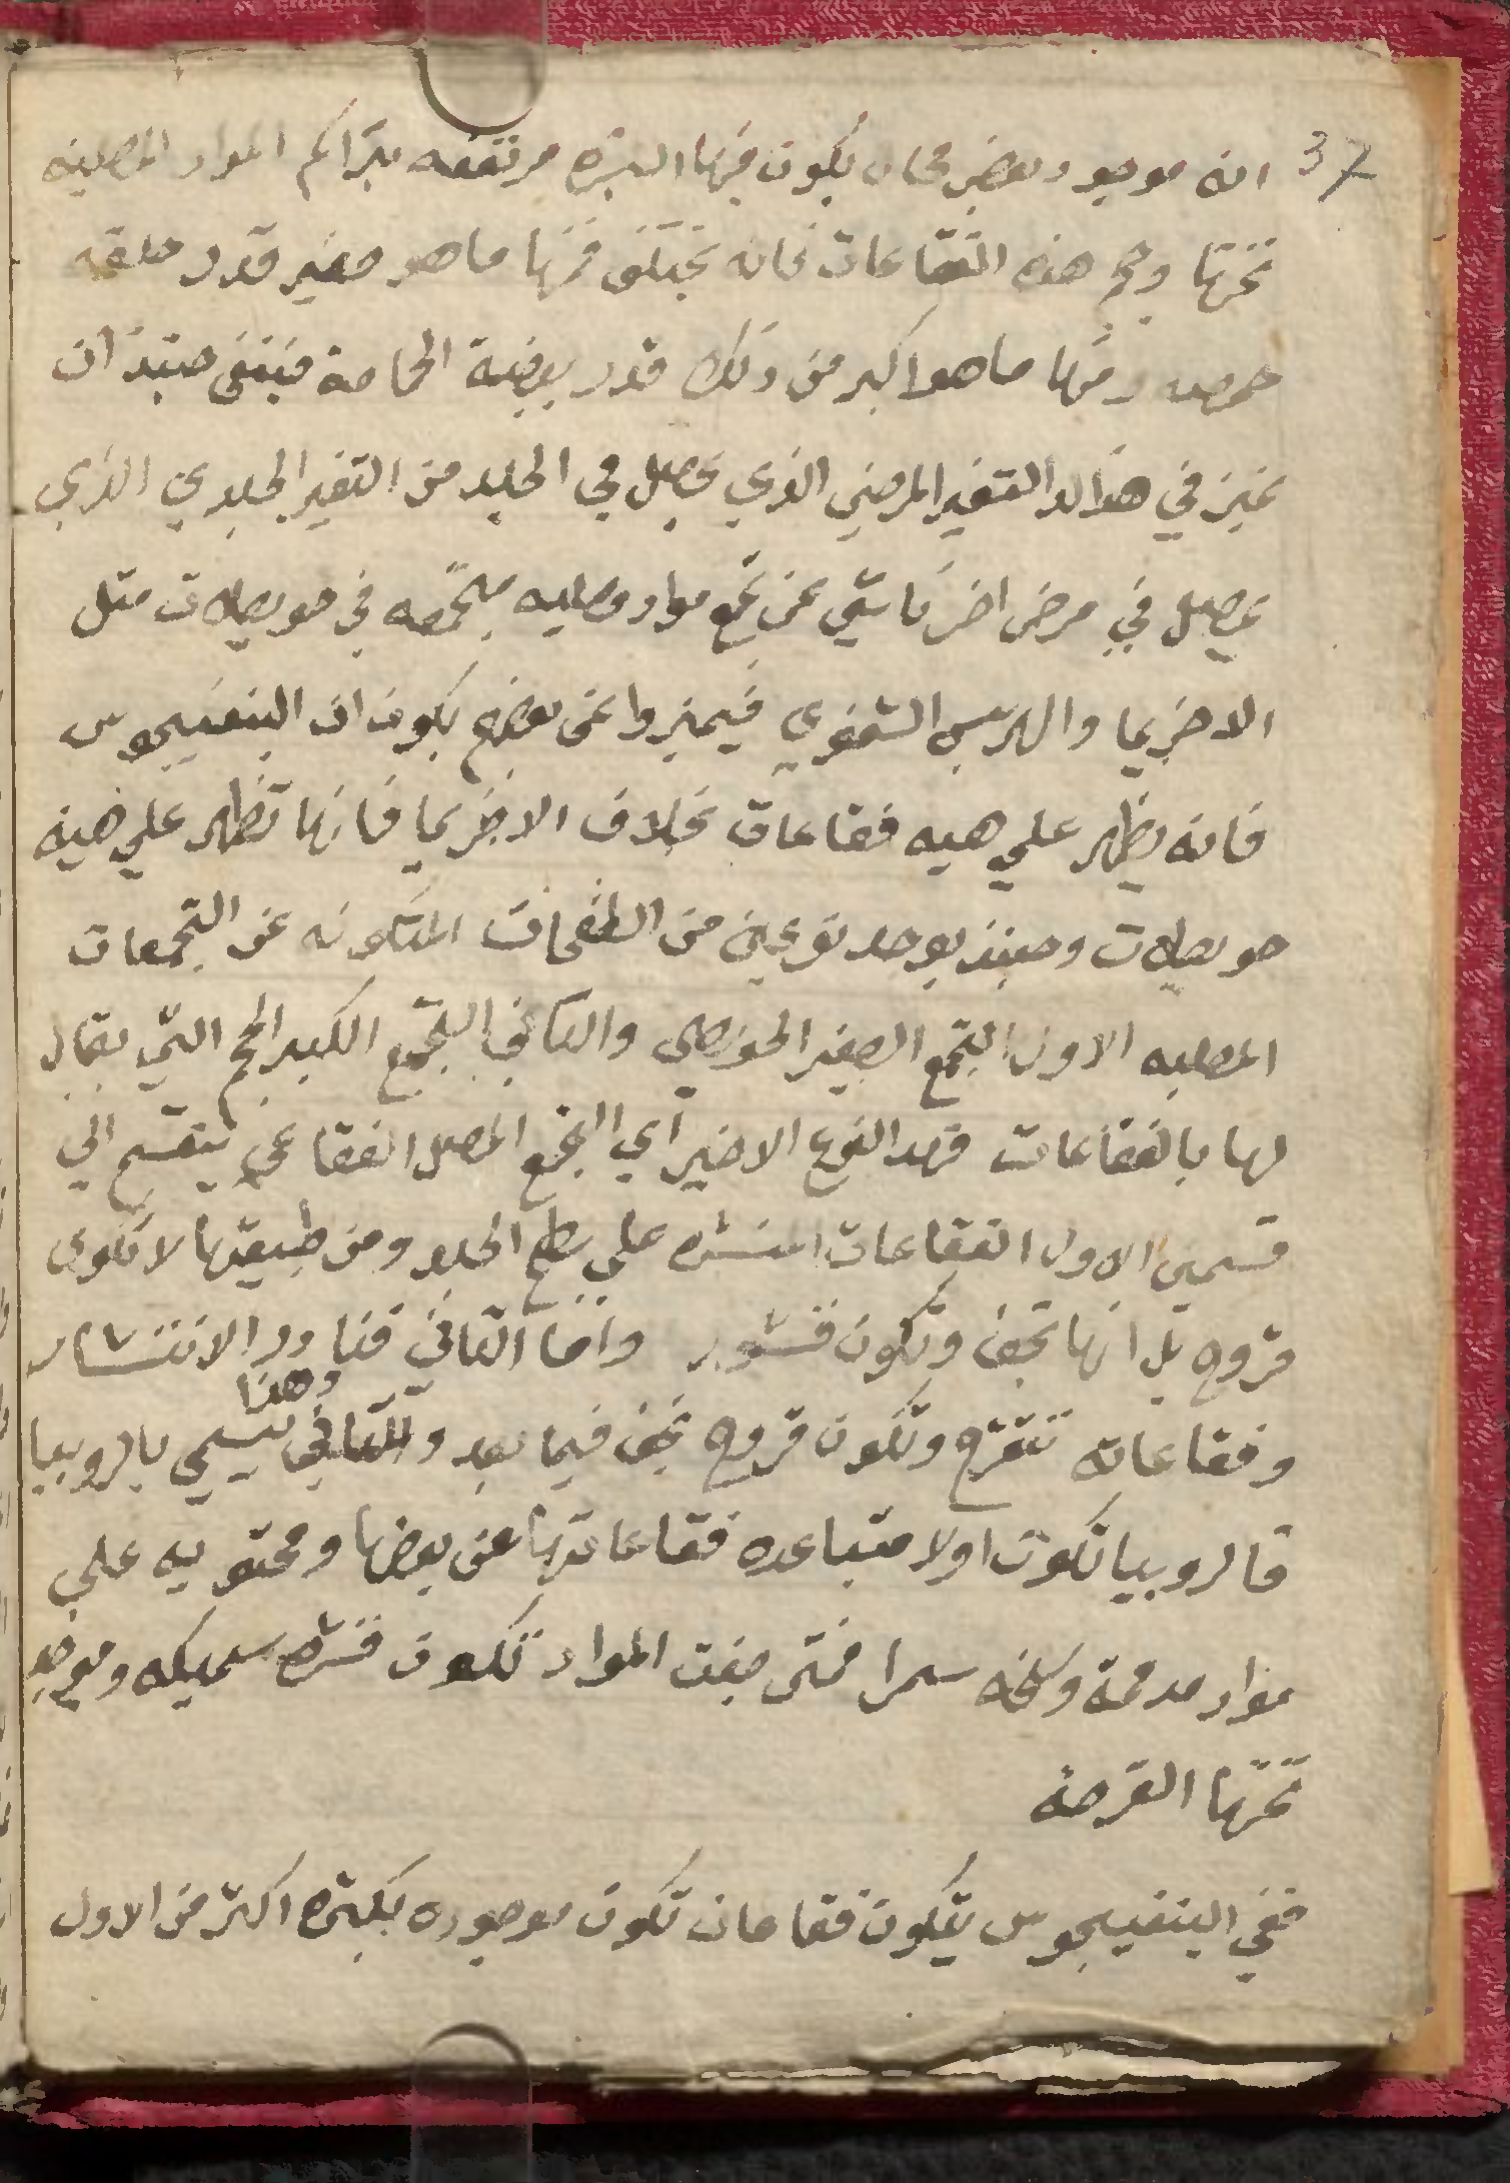 37
انه موجود بعض محلات يكون فيها البشره مرتفعه بتراكم المواد المصليه
تحتها وحجم هذه الفقاعات فانه يختلف فمنها ما هو صغير قدر حلقه
حمصه ومنها ما هو اكبر من ذلك قدر بيضة الحمامة فينبغى حينئذ ان
نميز في هذا التغير المرضي الذي يحصل في الجلد من التغير الجلدي الذي
يحصل في مرض اخر ناشي عن تجمع مواد مصليه مجتمعه في حويصلات مثل
الاخزيما والهربس الشفوي فيميزوا عن بعضهم بكون ان البنفيجوس
فانه يظهر علي هيه فقاعات بخلاف الاخزيما فانها تظهر علي هيئه
حويصلات وحينئذ يوجد نوعين من الطفحات المتكونه عن التجمعات
المصليه الاول التجمع الصغير الحويصلي والثاني التجمع الكبير الحجم التي يقال
لها بالفقاعات فهدا النوع الاخير اي التجمع المصل الفقاعي ينقسم الي
قسمين الاول الفقاعات المنتشره علي سطح الجلد ومن طبيعتها لا تكون
قروح بل انها تجف وتكون قشور واما الثاني فنادر الانتشار
وفقاعاته تتقرح وتكون قروح تجف فيما بعد والثاني وهذا يسمي بالروبيا
فالروبيا تكون اولا متباعده فقاعاتها عن بعضها ومحتويه علي
مواد مدممة وسخه سمرا فمتى جفت المواد تكون قشره سميكه ويوجد
تحتها القرحه
ففي البنفيجوس يتكون فقاعات تكون موجوده بكثره اكثر من الاول